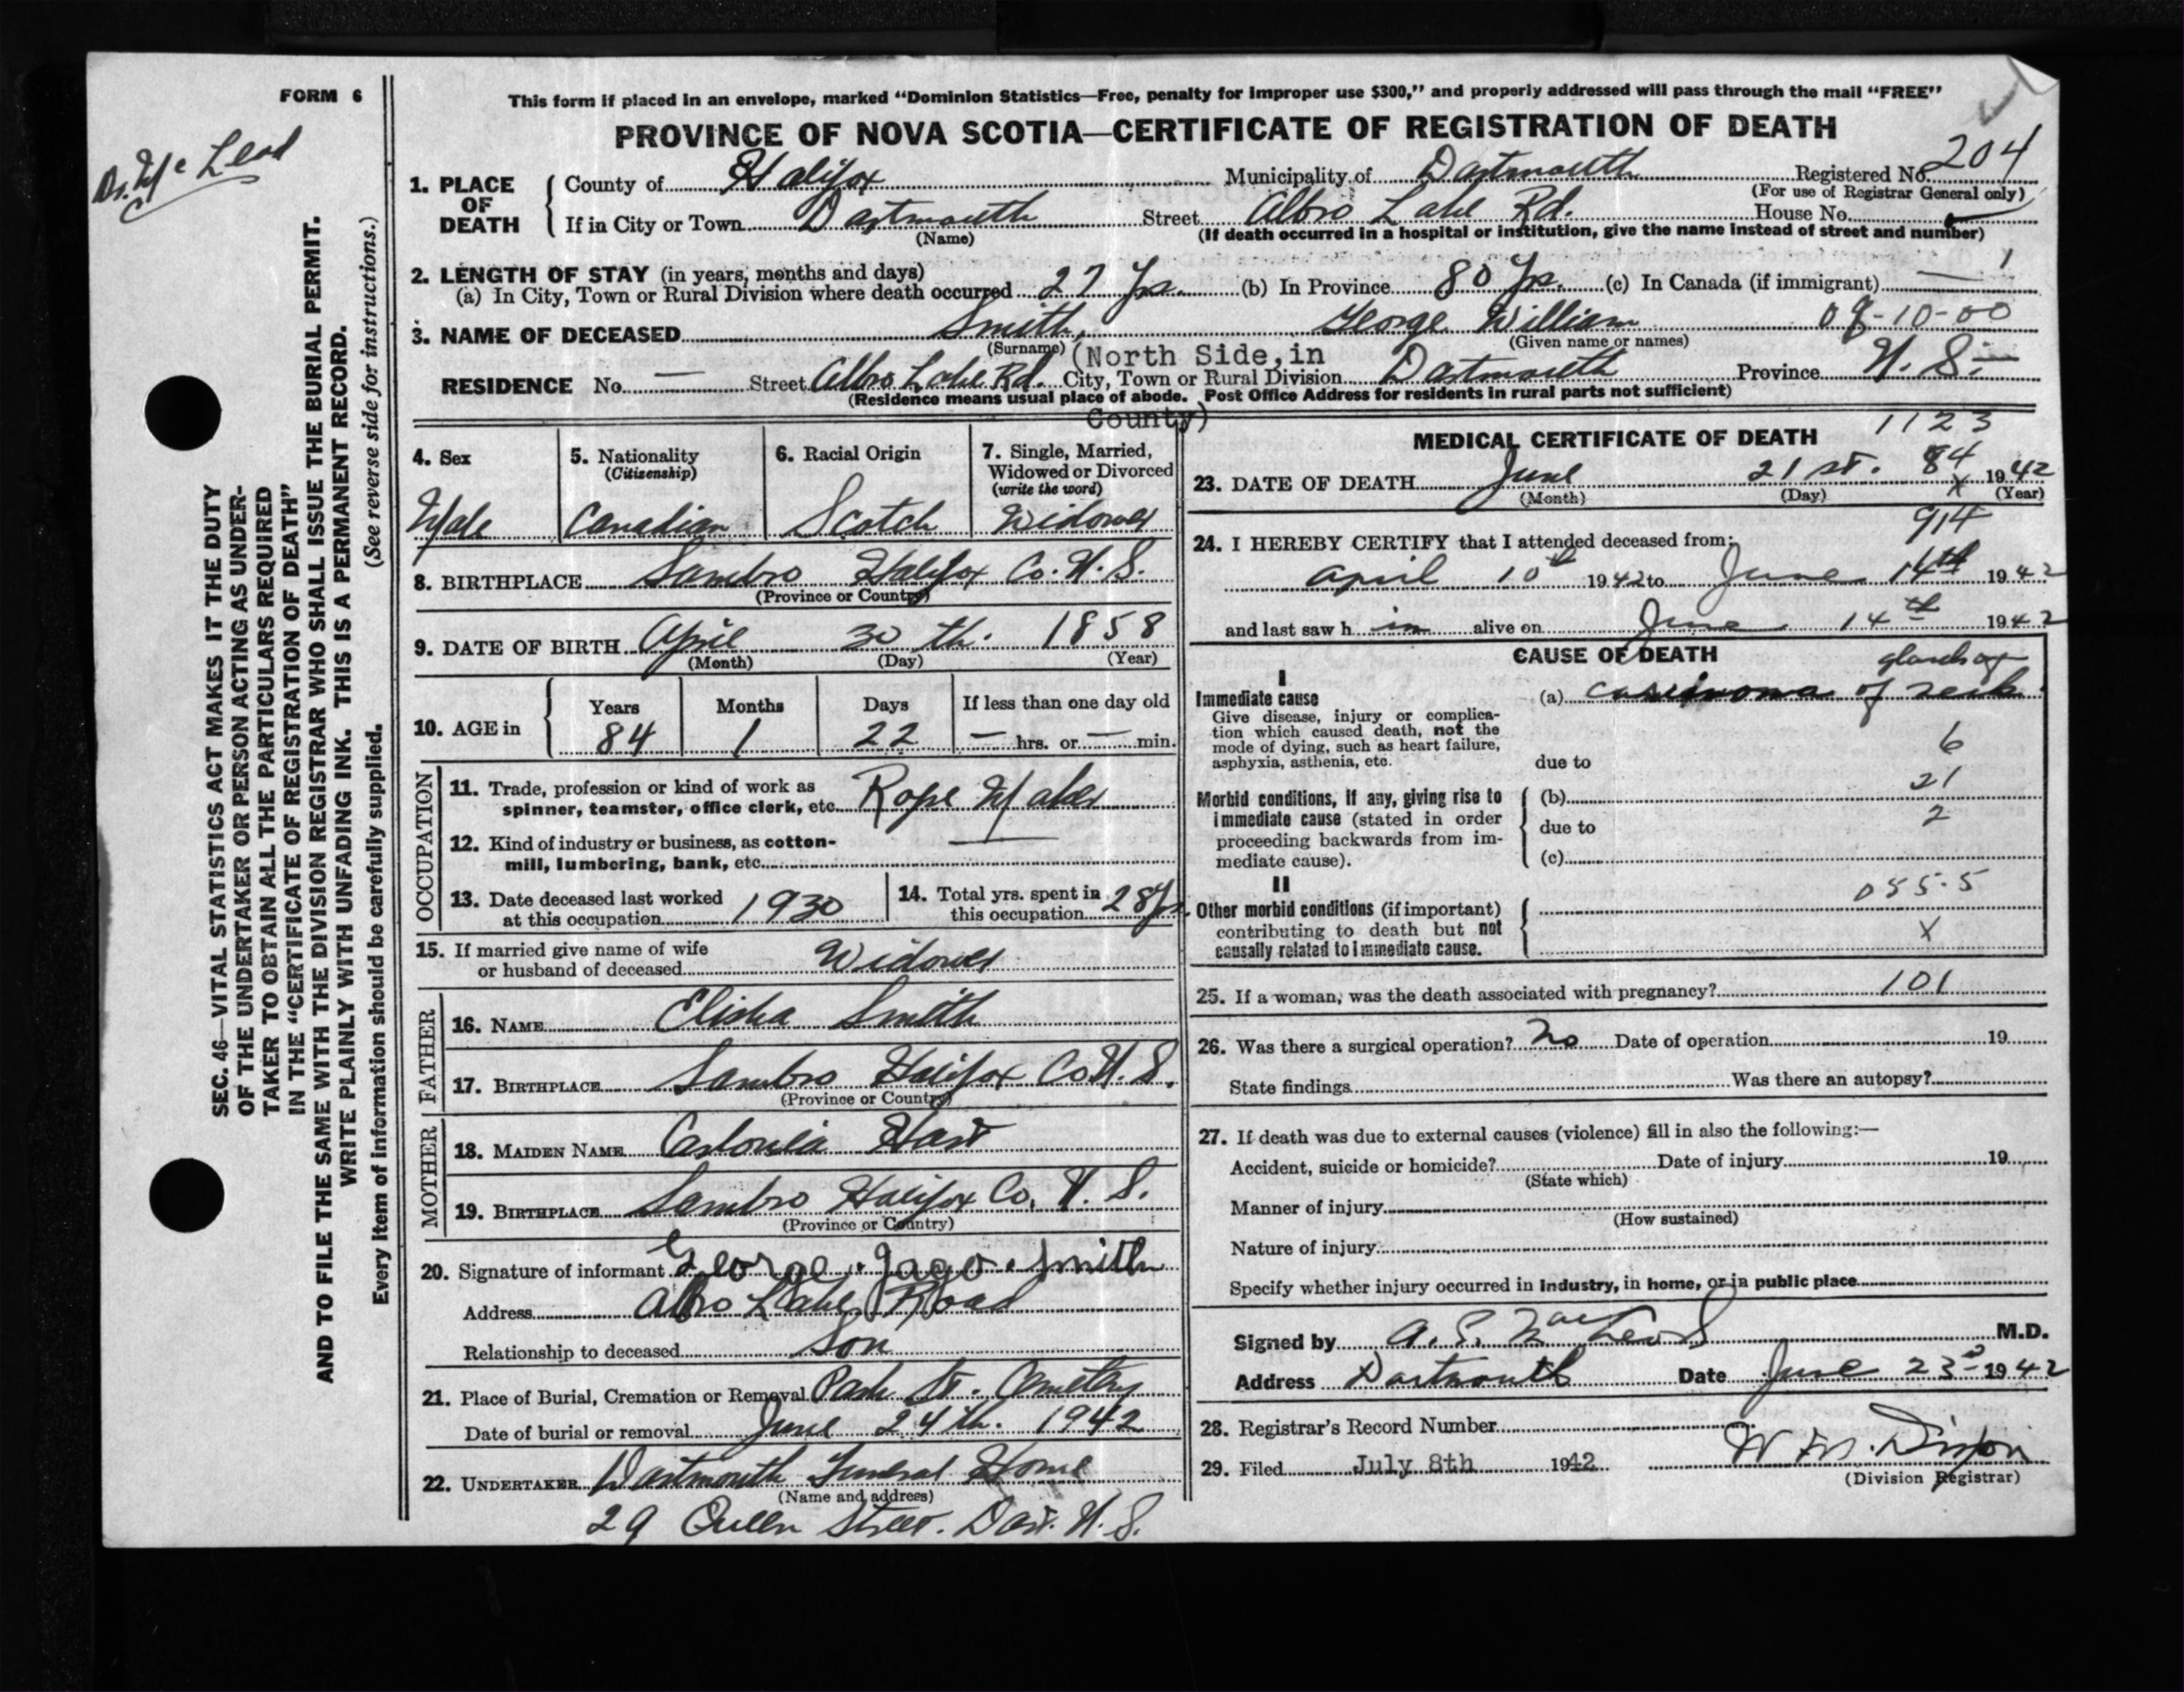 FORM 6
Dr. McLeod
SEC. 46—VITAL STATISTICS ACT MAKES IT THE DUTY
OF THE UNDERTAKER OR PERSON ACTING AS UNDER-
TAKER TO OBTAIN ALL THE PARTICULARS REQUIRED
IN THE "CERTIFICATE OF REGISTRATION OF DEATH"
AND TO FILE THE SAME WITH THE DIVISION REGISTRAR WHO SHALL ISSUE THE BURIAL PERMIT.
WRITE PLAINLY WITH UNFADING INK. THIS IS A PERMANENT RECORD.
Every item of information should be carefully supplied. (See reverse side for instructions.)
This form if placed in an envelope, marked "Dominion Statistics—Free, penalty for improper use $300," and properly addressed will pass through the mail "FREE"
PROVINCE OF NOVA SCOTIA—CERTIFICATE OF REGISTRATION OF DEATH
1. PLACE OF DEATH County of Halifax Municipality of Dartmouth Registered No. 204
(For use of Registrar General only)
If in City or Town Dartmouth Street Albro Lake Rd. House No.
(Name) (If death occurred in a hospital or institution, give the name instead of street and number)
2. LENGTH OF STAY (in years, months and days)
(a) In City, Town or Rural Division where death occurred 27 Yrs. (b) In Province 80 Yrs. (c) In Canada (if immigrant) — 1
3. NAME OF DECEASED Smith, George William 08-10-00
(Surname) (Given name or names)
(North Side, in
RESIDENCE No. — Street Albro Lake Rd. City, Town or Rural Division Dartmouth Province N.S.
(Residence means usual place of abode. Post Office Address for residents in rural parts not sufficient)
County)
4. Sex 5. Nationality (Citizenship) 6. Racial Origin 7. Single, Married, Widowed or Divorced (write the word)
Male Canadian Scotch Widower
8. BIRTHPLACE Sambro Halifax Co. N.S.
(Province or Country)
9. DATE OF BIRTH April 30th. 1858
(Month) (Day) (Year)
10. AGE in Years Months Days If less than one day old
84 1 22 — hrs. or — min.
OCCUPATION
11. Trade, profession or kind of work as
spinner, teamster, office clerk, etc. Rope Maker
12. Kind of industry or business, as cotton-
mill, lumbering, bank, etc. —
13. Date deceased last worked
at this occupation 1930
14. Total yrs. spent in
this occupation 28 Yrs.
15. If married give name of wife
or husband of deceased Widower
FATHER
16. NAME Elisha Smith
17. BIRTHPLACE Sambro Halifax Co N.S.
(Province or Country)
MOTHER
18. MAIDEN NAME Hart
19. BIRTHPLACE Sambro Halifax Co, N.S.
(Province or Country)
20. Signature of informant George Jago Smith
Address Albro Lake Road
Relationship to deceased Son
21. Place of Burial, Cremation or Removal Park St. Cemetery
Date of burial or removal June 24th. 1942
22. UNDERTAKER Dartmouth Funeral Home
(Name and address)
29 Queen Street. Dart. N.S.
1123
MEDICAL CERTIFICATE OF DEATH
84
23. DATE OF DEATH June 21st. 1942
(Month) (Day) X (Year)
914
24. I HEREBY CERTIFY that I attended deceased from:
April 10th 1942 to June 14th 1942
and last saw h im alive on June 14th 1942
CAUSE OF DEATH
I
Immediate cause
Give disease, injury or complica-
tion which caused death, not the
mode of dying, such as heart failure,
asphyxia, asthenia, etc.
glands of
(a) carcinoma of neck
6
due to
21
Morbid conditions, if any, giving rise to
immediate cause (stated in order
proceeding backwards from im-
mediate cause).
(b)
2
due to
(c)
II
055.5
Other morbid conditions (if important)
contributing to death but not
causally related to immediate cause.
X
25. If a woman, was the death associated with pregnancy? 101
26. Was there a surgical operation? No Date of operation 19
State findings Was there an autopsy?
27. If death was due to external causes (violence) fill in also the following:—
Accident, suicide or homicide? Date of injury 19
(State which)
Manner of injury
(How sustained)
Nature of injury
Specify whether injury occurred in industry, in home, or in public place
Signed by A. S. MacLeod M.D.
Address Dartmouth Date June 23rd 1942
28. Registrar's Record Number
29. Filed July 8th 1942
(Division Registrar)